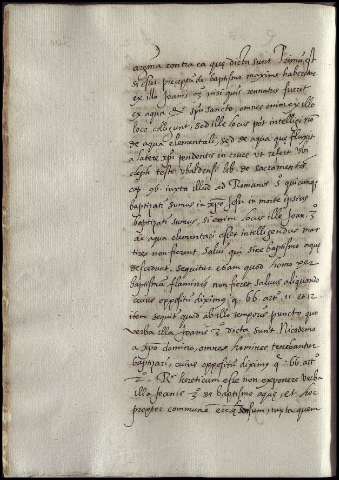 arguma contra ea que dicta sunt Primū, qt
si esset preceptū de baptismo maxime haberetur
ex illo Joanis 3 nisi quis renatus fuerit
ex aqua & spū sancto, omnes enim ex illo
loco colligunt, sed ille locus nō pōt intelligi
de aqua elementali, sed de aqua que fluxit
a latere xpi pendentis in cruce ut refert
teste ubaldensi lib. de sacramentis
cap 96. iuxta illud ad Romanos 5 quicunque
baptizati sumus in xpo Jesu in morte ipsius
baptizati sumus, si enim locus ille Joan. 3
de aqua elementari esset intelligendus mar
tires non fierent salvi qui sine baptismo aque
decedunt. sequitur etiam quod homo per
baptismū flaminis non fieret salvus aliquando
cuius oppositū diximꝰ q. 66 artº 11 et 12
item sequitr quod ab illo temporis puncto quo
verba illa Joanis 3 dicta sunt Nicodemo
a xpo domino, omnes homines tenebantur
baptizari, cuius oppositū diximꝰ q. 66. artº
2. Rº hereticum esse non exponere verba
illa Joanis 3 de baptismo aque, et hoc
propter communē sensum, iuxta quem